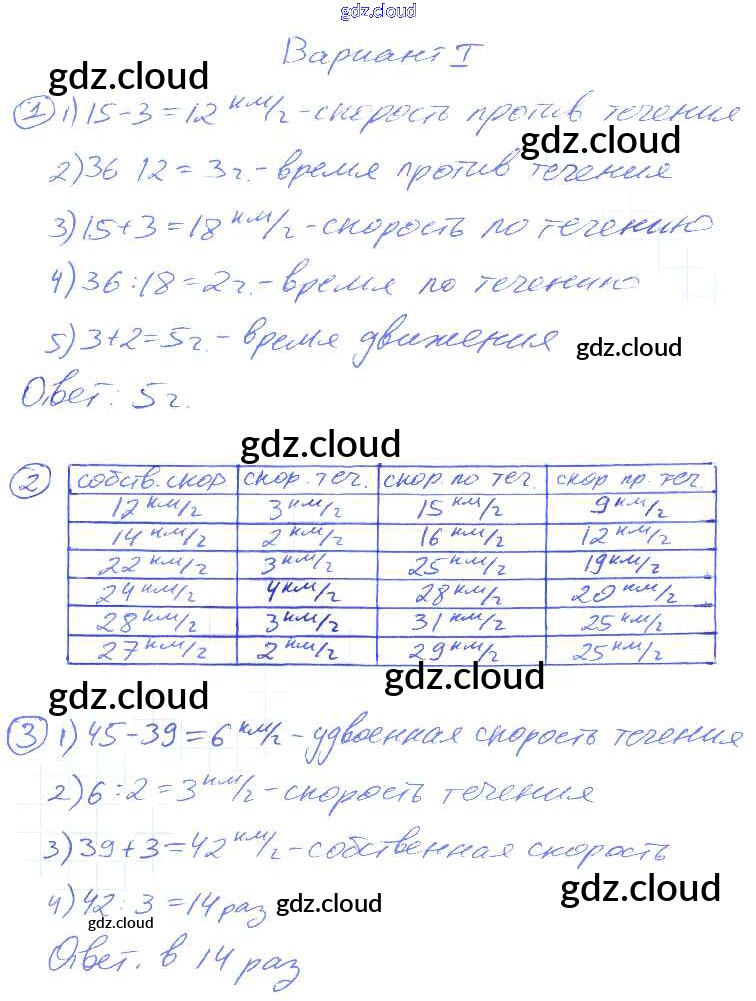 gdz.cloud
Вариант I
gdz.cloud
1 1) 15-3=12 км/г - скорость против течения
gdz.cloud
2) 36 12 = 3 г. - время против течения
3) 15+3=18 км/г - скорость по течению
4) 36:18=2 г. - время по течению
5) 3+2=5 г. - время движения
gdz.cloud
Ответ: 5 г.
gdz.cloud
2 собств. скор скор. теч. скор. по теч. скор пр. теч.
12 км/г 3 км/г 15 км/г 9 км/г
14 км/г 2 км/г 16 км/г 12 км/г
22 км/г 3 км/г 25 км/г 19 км/г
24 км/г 4 км/г 28 км/г 20 км/г
28 км/г 3 км/г 31 км/г 25 км/г
27 км/г 2 км/г 29 км/г 25 км/г
gdz.cloud
gdz.cloud
3 1) 45-39=6 км/г - удвоенная скорость течения
2) 6:2=3 км/г - скорость течения
3) 39+3=42 км/г - собственная скорость
gdz.cloud
4) 42:3=14 раз
gdz.cloud
gdz.cloud
Ответ. в 14 раз